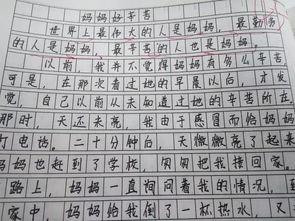 妈妈好辛苦
世界上最伟大的人是妈妈，最勤劳
的人是妈妈，最辛苦的人也是妈妈。
以前，我并不觉得妈妈有多么辛苦
可是，在那次看过她的早晨以后，才发
觉，自己以前从未知道过她的辛苦所在。
那时，天还未亮，我由于感冒而给妈妈
打电话。二十分钟后，天微微亮了起来
妈妈也赶到了学校，匆匆把我接回家
路上，妈妈一直询问着我的情况，到
家中，妈妈给我倒了一杯热水，又